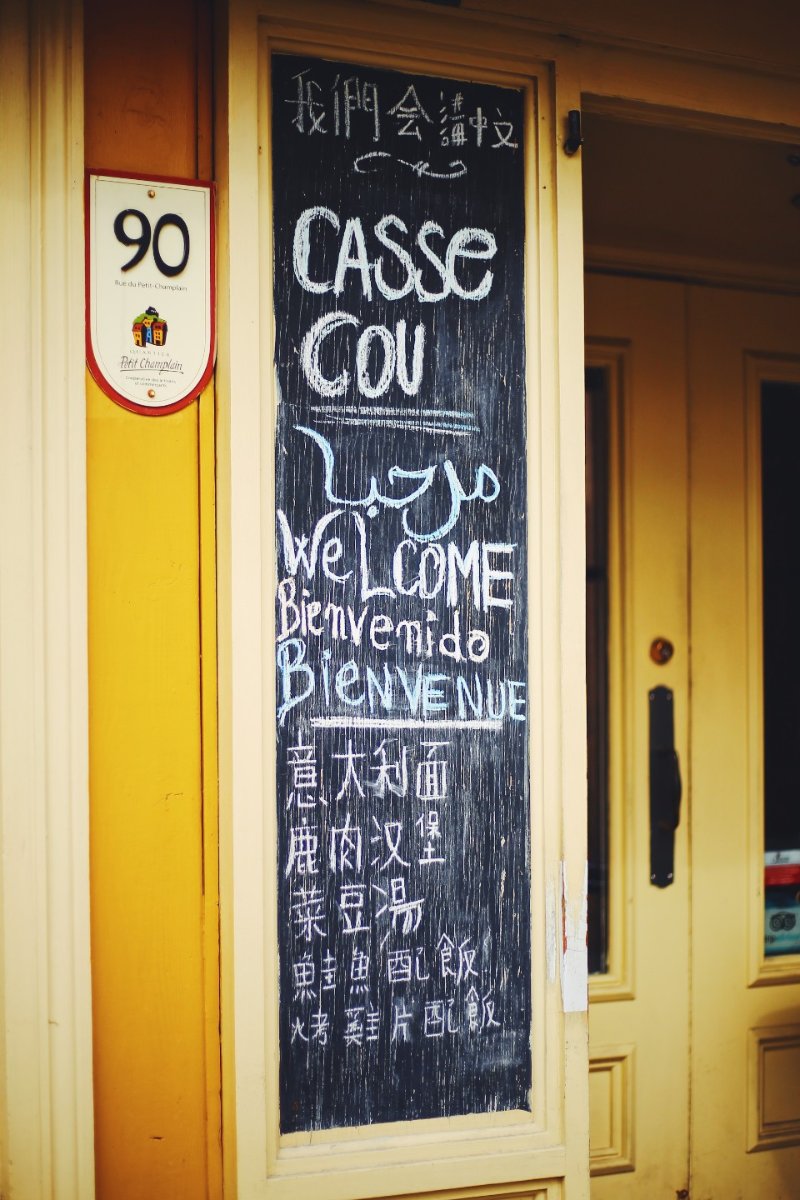 90
Rue du Petit-Champlain
QUARTIER
Petit Champlain
Coopérative des artisans
et commerçants
我們会講中文
CASSE
COU
مرحبا
WeLCOME
Bienvenido
BieNVENUE
意大利面
鹿肉汉堡
菜豆湯
鮭魚配飯
烤雞片配飯